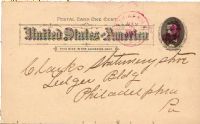 POSTAL CARD ONE CENT.
United States of America
THIS SIDE IS FOR ADDRESS ONLY.
Clarks Stationery Store
Ledger Bldg
Philadelphia
Pa